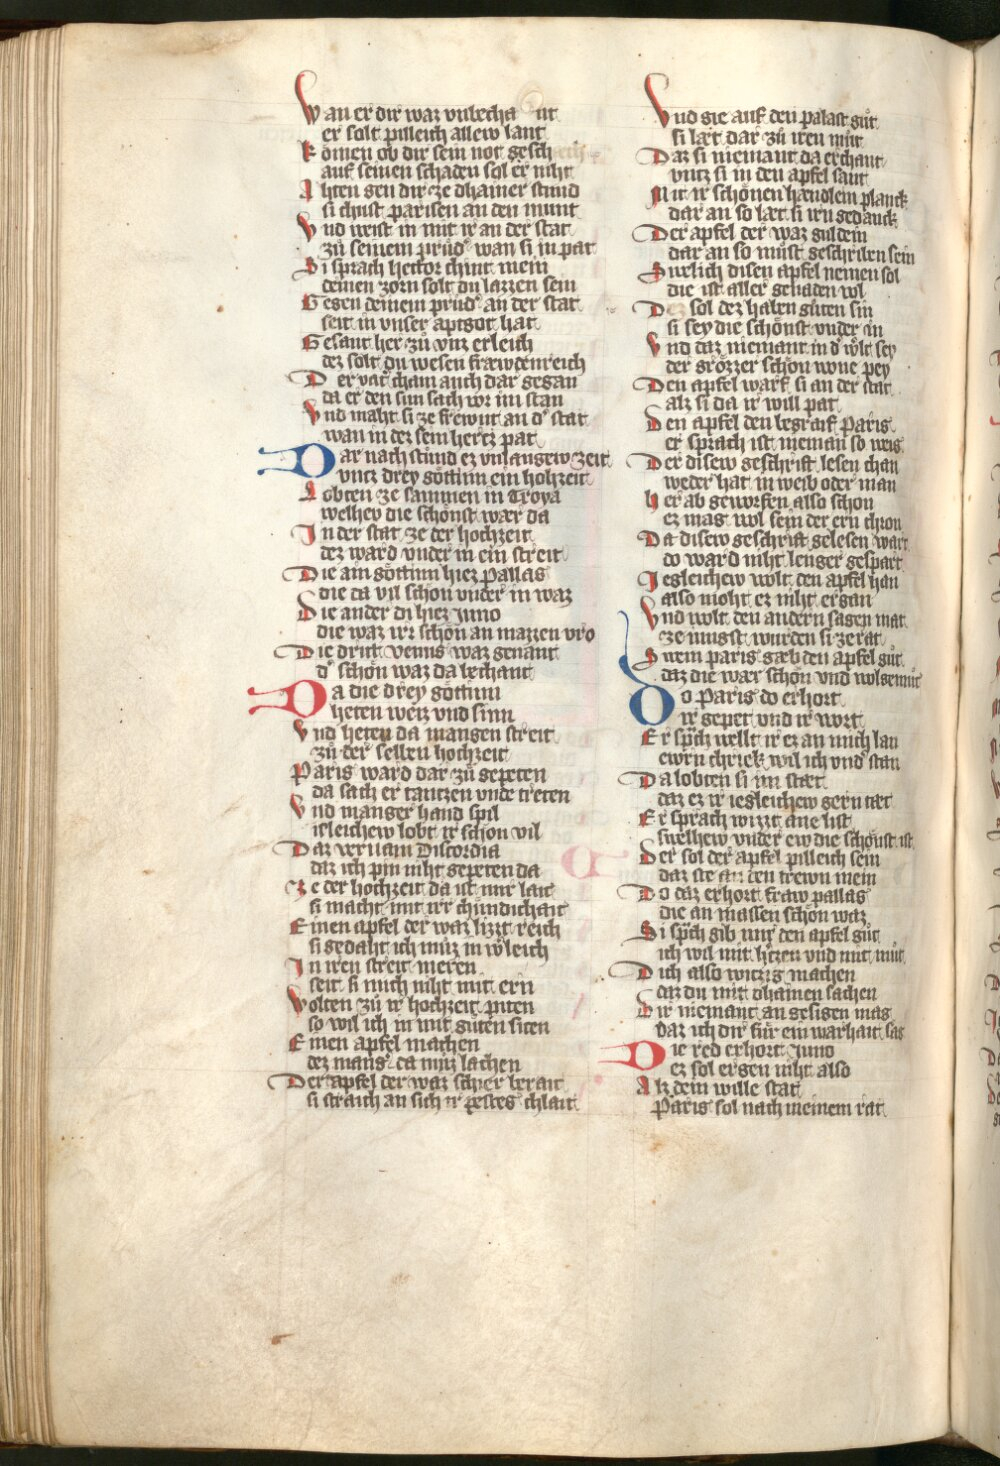 Wan er dir waz vnbecha nt
er solt pilleich allew lant
Komen ob dir sein not gesch
auf seinen schaden sol er niht
Ahten gen dir ze dhainer stund
si chust parisen an den munt
Vnd weist in mit ir an der stat
zů seinem průd' wan si in pat
Si sprach hector chint mein
deinen zorn solt du lazzen sein
Gegen deinem prud' an der stat
seit in vnser aptgot hat
Gesant her zů vnz erleich
dez solt du wesen frawdenreich
Der vat' cham auch dar gegan
da er den sun sach vor im stan
Vnd maht si ze frewnt an d' stat
wan in dez sein hertz pat
Dar nach stůnd ez vnlangew zeit
vntz drey göttinn ein hohzeit
Lobten ze sammen in Troya
welhev die schönst wær da
In der stat ze der hochzeit
dez ward vnder in ein streit
Die ain göttinn hiez Pallas
die da vil schon vnder in waz
Die ander di hiez Juno
die waz irr schön an mazzen vro
Die dritt venus waz genant
d' schön waz da bechant
Da die drey göttinn
heten weiz vnd sinn
Vnd heten da mangen streit
zů der selben hochzeit
Paris ward dar zů gepeten
da sach er tantzen vnde treten
Vnd manger hand spil
isleichew lobt ir schon vil
Daz vernam Discordia
daz ich pin niht gepeten da
Ze der hochzeit da ist mir lait
si macht mit irr chündichait
Einen apfel der waz lizzt reich
si gedaht ich můz in w'leich
In iren streit meren
seit si mich niht mit ern
Wolten zů ir hochzeit piten
so wil ich in mit gůten siten
Einen apfel machen
dez mang' da můz lachen
Der apfel der waz schier berait
si straich an sich ir pestes chlait
Vnd gie auf den palast gůt
si læt dar zů iren můt
Daz si niemant da erchant
vntz si in den apfel sant
Mit ir schönen hændlein planck
dar an so læt si irn gedanck
Der apfel der waz guldein
dar an so můst geschriben sein
Swelich disen apfel nemen sol
die ist aller genaden vol
Dez sol dez haben gůten sin
si sey die schönst vnder in
Vnd daz niemant in d' w'lt sey
der grözzer schön wone pey
Den apfel warf si an der stat
alz si da ir will pat
Den apfel den begraif Paris
er sprach ist nieman so weis
Der disew geschrift lesen chan
weder hat in weib oder man
Her ab geworfen also schon
ez mag wol sein der ern chron
Da disew geschrift gelesen wart
do ward niht lenger gespart
Iegleichew wolt den apfel han
also moht ez niht ergan
Vnd wolt den andern sagen mat
ze iungst wurden si ze rat
Swem paris gæb den apfel gůt
daz die wær schön vnd wolgemůt
Do Paris do erhort
ir gepet vnd ir wort
Er sp'ch wellt ir ez an mich lan
ewrn chriek wil ich vnd' stan
Da lobten si im stæt
daz ez ir iegleichew gern tæt
Er sprach wizzt ane list
swelhew vnder ew die schönst ist
Der sol der apfel pilleich sein
daz ste an den trewn mein
Do daz erhort fraw pallas
die an massen schön waz
Si sp'ch gib mir den apfel gůt
ich wil mit h'tzen vnd mit můt
Dich also witzig machen
daz du mit dhainen sachen
Dir niemant an gesigen mag
daz ich dir für ein warhait sag
Die red erhort Juno
ez sol ergen niht also
Alz dein wille stat
Paris sol nach meinem rat